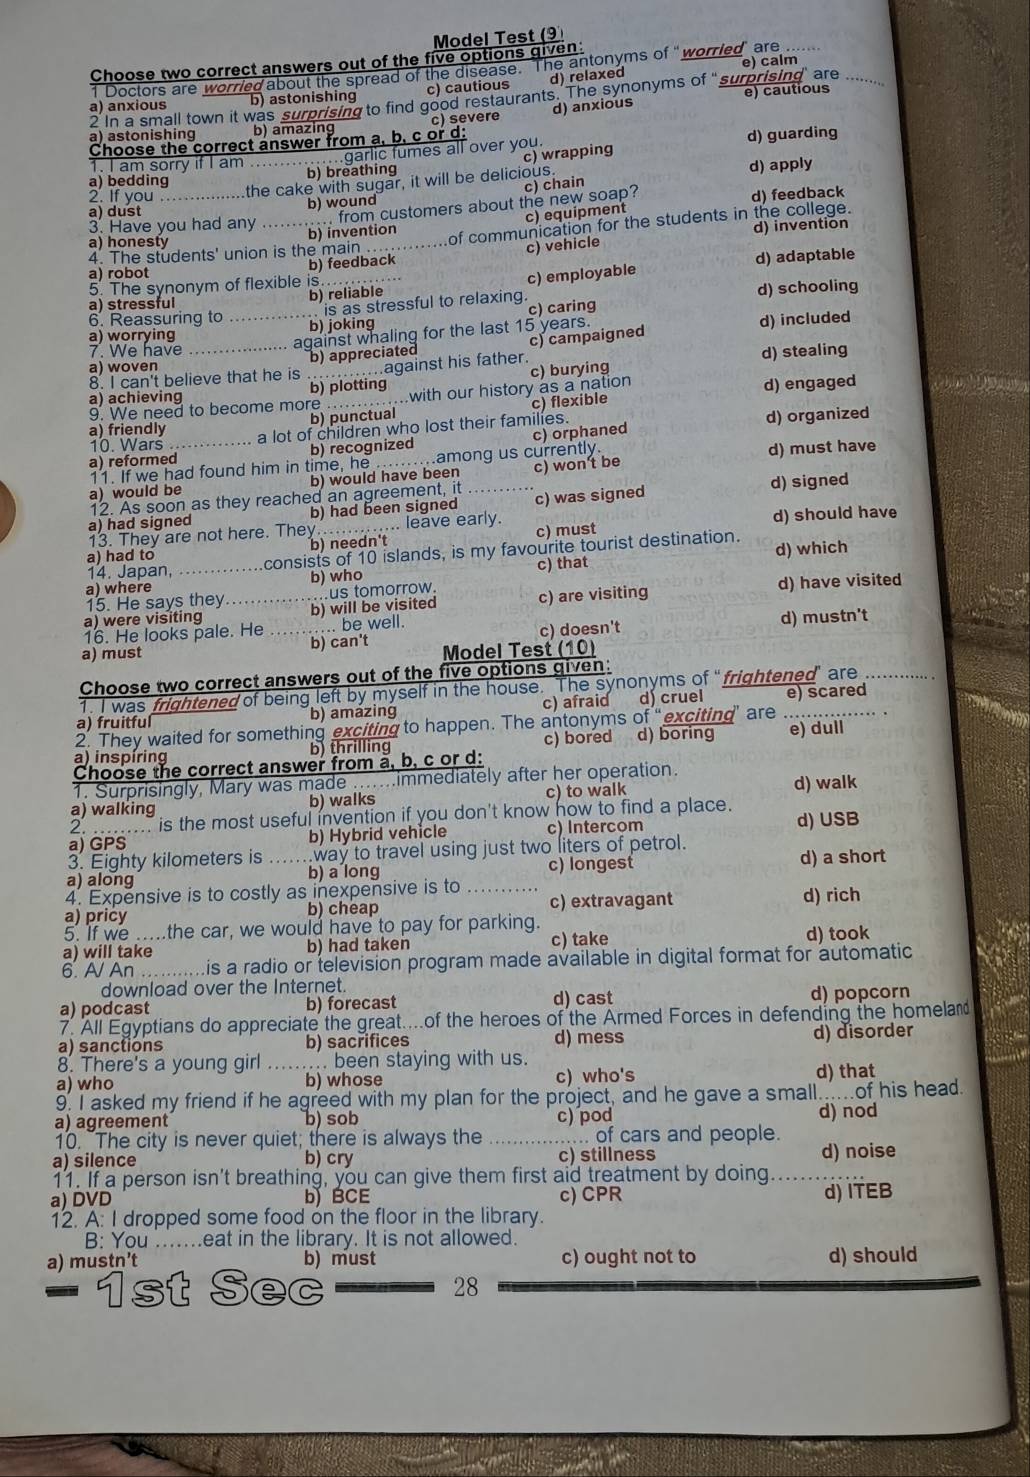 Model Test (9)
Choose two correct answers out of the five options given:
1 Doctors are worried about the spread of the disease. The antonyms of "worried" are .......
a) anxious b) astonishing c) cautious d) relaxed e) calm
2 In a small town it was surprising to find good restaurants. The synonyms of "surprising" are ........
a) astonishing b) amazing c) severe d) anxious e) cautious
Choose the correct answer from a, b, c or d:
1. I am sorry if I am ................garlic fumes all over you.
a) bedding b) breathing c) wrapping d) guarding
2. If you ................the cake with sugar, it will be delicious.
a) dust b) wound c) chain d) apply
3. Have you had any ............. from customers about the new soap?
a) honesty b) invention c) equipment d) feedback
4. The students' union is the main ...............of communication for the students in the college.
a) robot b) feedback c) vehicle d) invention
5. The synonym of flexible is...............
a) stressful b) reliable c) employable d) adaptable
6. Reassuring to ................ is as stressful to relaxing.
a) worrying b) joking c) caring d) schooling
7. We have .................. against whaling for the last 15 years.
a) woven b) appreciated c) campaigned d) included
8. I can't believe that he is ..............against his father.
a) achieving b) plotting c) burying d) stealing
9. We need to become more ...............with our history as a nation
a) friendly b) punctual c) flexible d) engaged
10. Wars ............... a lot of children who lost their families.
a) reformed b) recognized c) orphaned d) organized
11. If we had found him in time, he ...........among us currently.
a) would be b) would have been c) won't be d) must have
12. As soon as they reached an agreement, it ............
a) had signed b) had been signed c) was signed d) signed
13. They are not here. They............... leave early.
a) had to b) needn't c) must d) should have
14. Japan, ...............consists of 10 islands, is my favourite tourist destination.
a) where b) who c) that d) which
15. He says they..................us tomorrow.
a) were visiting b) will be visited c) are visiting d) have visited
16. He looks pale. He ............ be well.
a) must b) can't c) doesn't d) mustn't
Model Test (10)
Choose two correct answers out of the five options given:
1. I was frightened of being left by myself in the house. The synonyms of "frightened" are .............
a) fruitful b) amazing c) afraid d) cruel e) scared
2. They waited for something exciting to happen. The antonyms of "exciting" are ................ .
a) inspiring b) thrilling c) bored d) boring e) dull
Choose the correct answer from a, b, c or d:
1. Surprisingly, Mary was made .......immediately after her operation.
a) walking b) walks c) to walk d) walk
2. ......... is the most useful invention if you don't know how to find a place.
a) GPS b) Hybrid vehicle c) Intercom d) USB
3. Eighty kilometers is .......way to travel using just two liters of petrol.
a) along b) a long c) longest d) a short
4. Expensive is to costly as inexpensive is to ...........
a) pricy b) cheap c) extravagant d) rich
5. If we .....the car, we would have to pay for parking.
a) will take b) had taken c) take d) took
6. A/ An ...........is a radio or television program made available in digital format for automatic
download over the Internet.
a) podcast b) forecast d) cast d) popcorn
7. All Egyptians do appreciate the great....of the heroes of the Armed Forces in defending the homeland
a) sanctions b) sacrifices d) mess d) disorder
8. There's a young girl ......... been staying with us.
a) who b) whose c) who's d) that
9. I asked my friend if he agreed with my plan for the project, and he gave a small......of his head.
a) agreement b) sob c) pod d) nod
10. The city is never quiet; there is always the ................ of cars and people.
a) silence b) cry c) stillness d) noise
11. If a person isn't breathing, you can give them first aid treatment by doing..............
a) DVD b) BCE c) CPR d) ITEB
12. A: I dropped some food on the floor in the library.
B: You .......eat in the library. It is not allowed.
a) mustn't b) must c) ought not to d) should
1st Sec 28